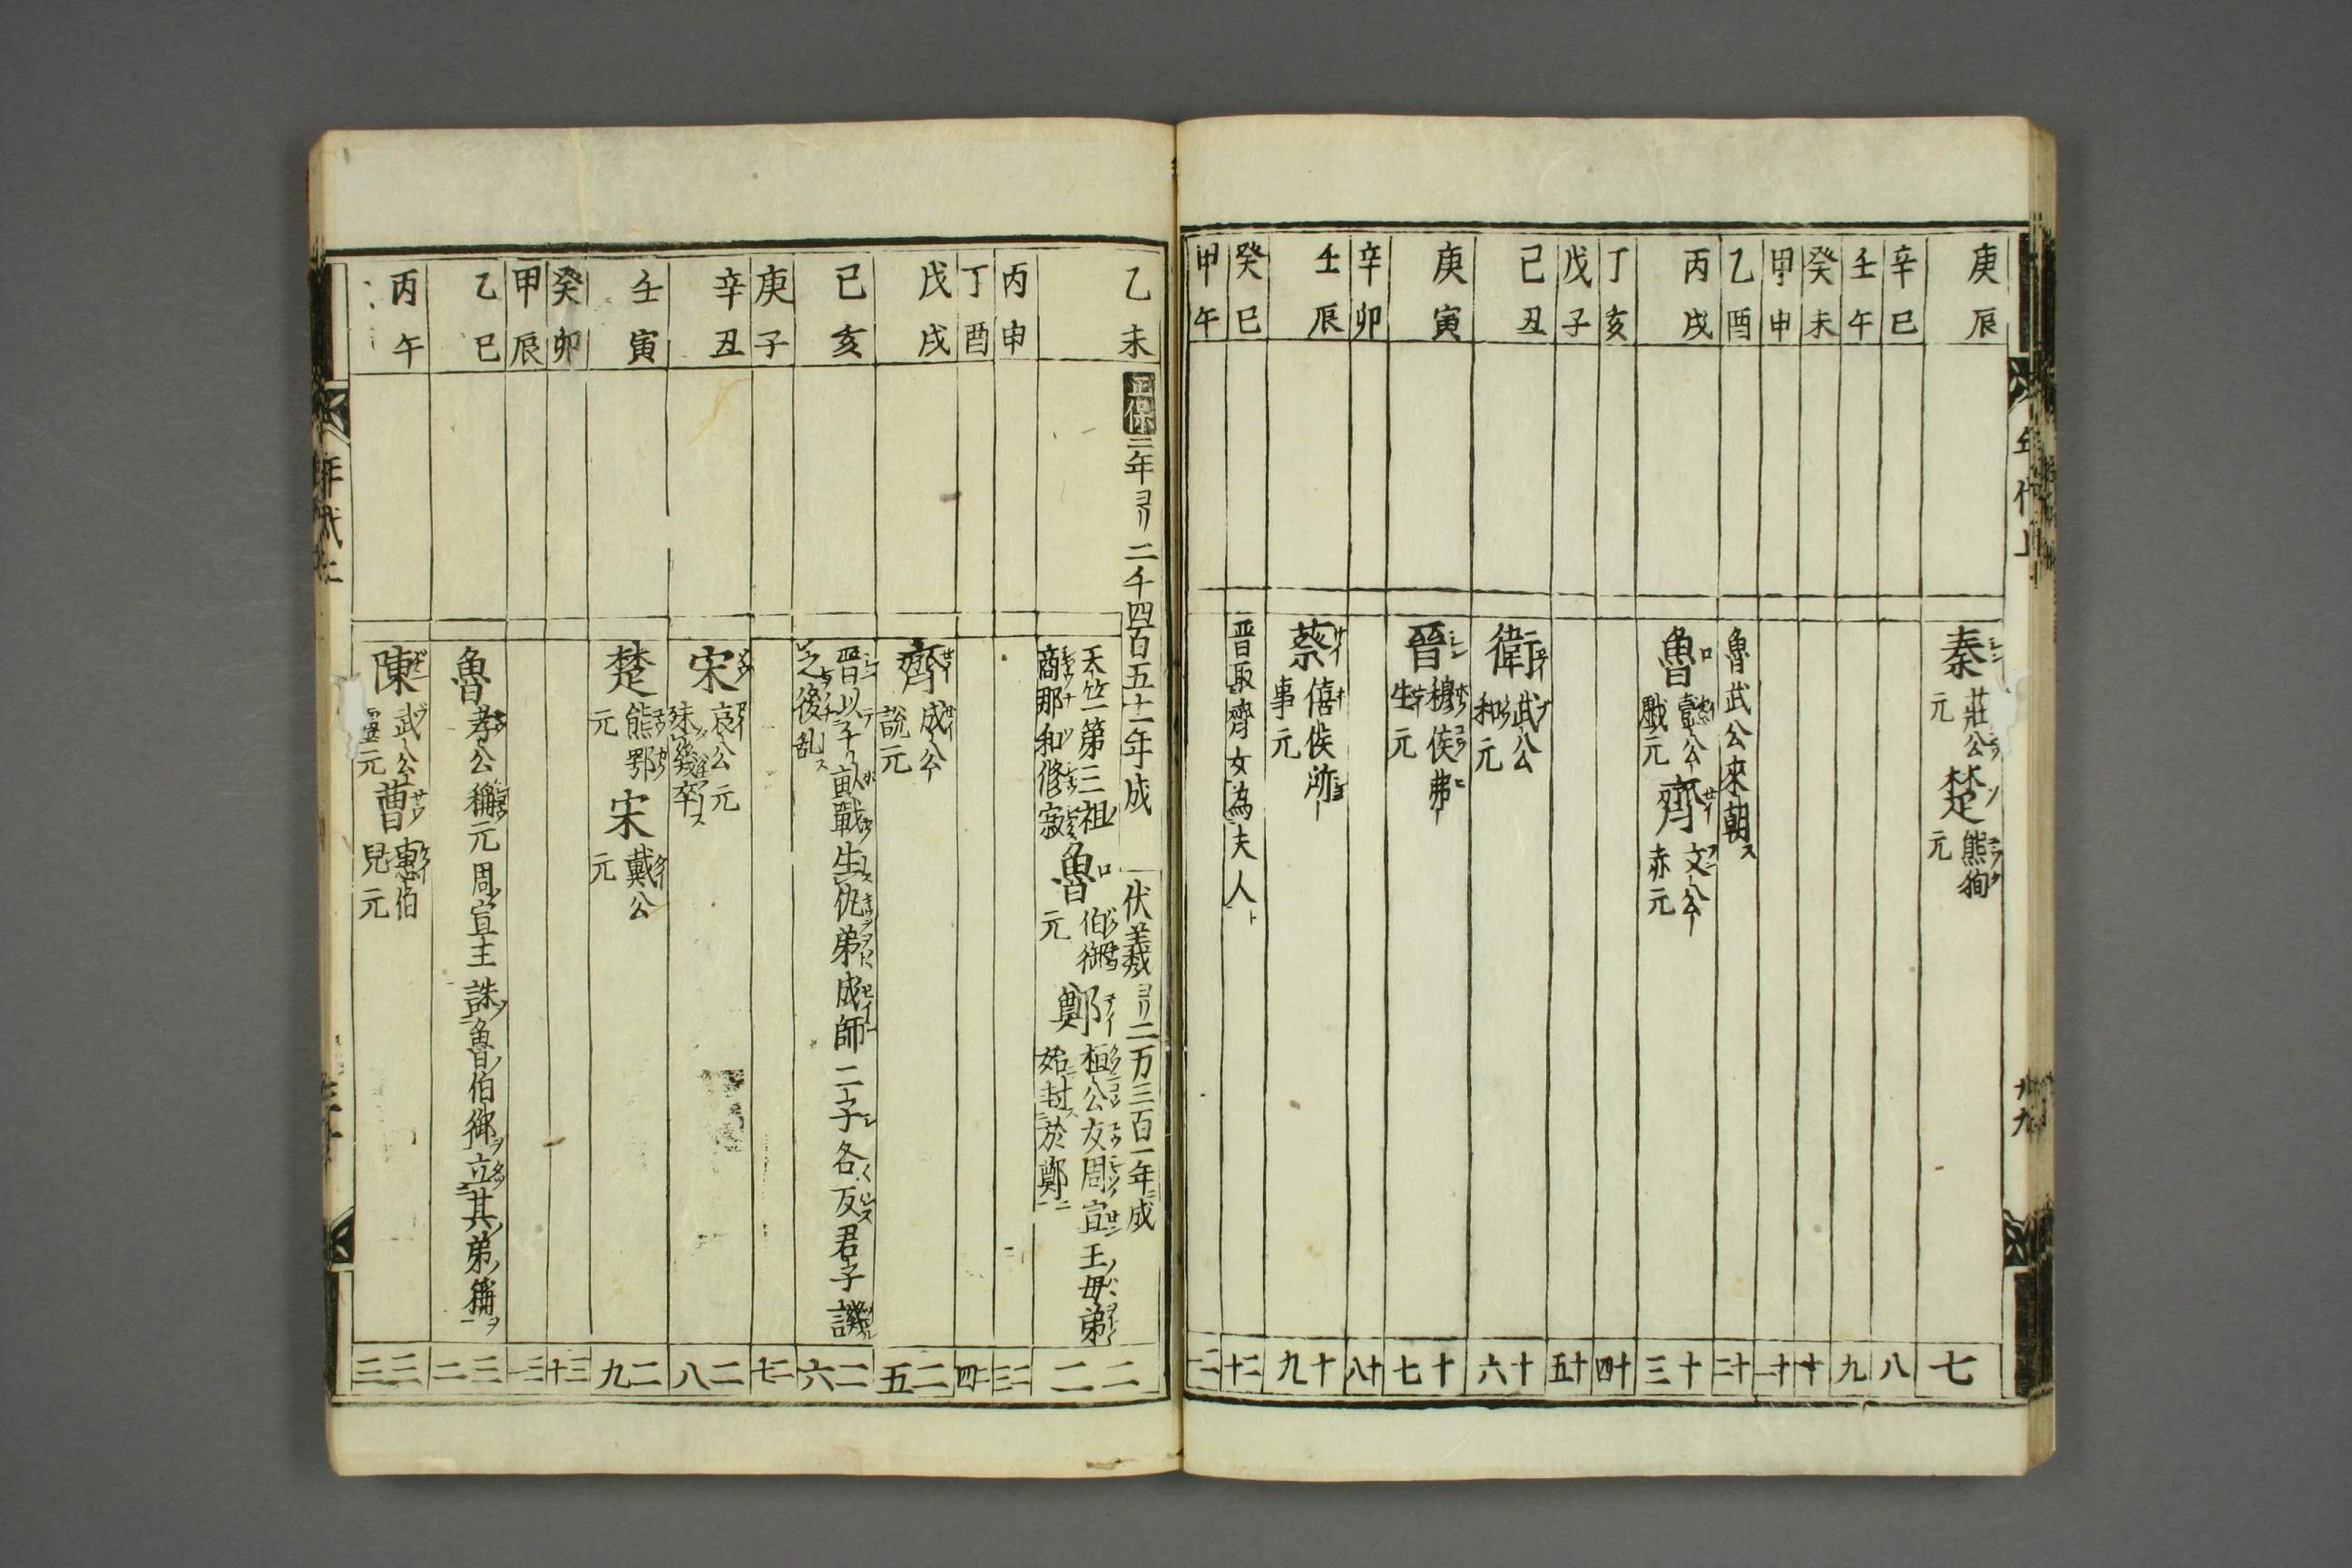 庚辰
秦 莊公元 楚 熊狥元
七
辛巳
八
壬午
九
癸未
十
甲申
十一
乙酉
魯武公來朝ス
十二
丙戌
魯 懿公戱元 齊 文公赤元
十三
丁亥
十四
戊子
十五
己丑
衛 武公和元
十六
庚寅
晉 穆侯弗生元
十七
辛卯
十八
壬辰
蔡 僖侯所事元
十九
癸巳
晋取齊女為夫人ト
二十
甲午
二一
年代上
廿九
乙未
正保三年ヨリ二千四百五十一年成 伏羲ヨリ二万三百一年成
天竺第三祖商那和修寂 魯 伯御元 鄭 桓公友周宣王ノ母弟始封於鄭
二二
丙申
二三
丁酉
二四
戊戌
齊 成公說元
二五
己亥
晋以千畝戰生仇弟成師二子各反君子譏之後乱ス
二六
庚子
二七
辛丑
宋 哀公元 殊幾卒ス
二八
壬寅
楚 熊鄂元 宋 戴公元
二九
癸卯
三十
甲辰
三一
乙巳
魯 孝公稱元 周宣王誅魯伯御立其弟稱ヲ
三二
丙午
陳 武公元 曹 惠伯兒元
三三
年代上